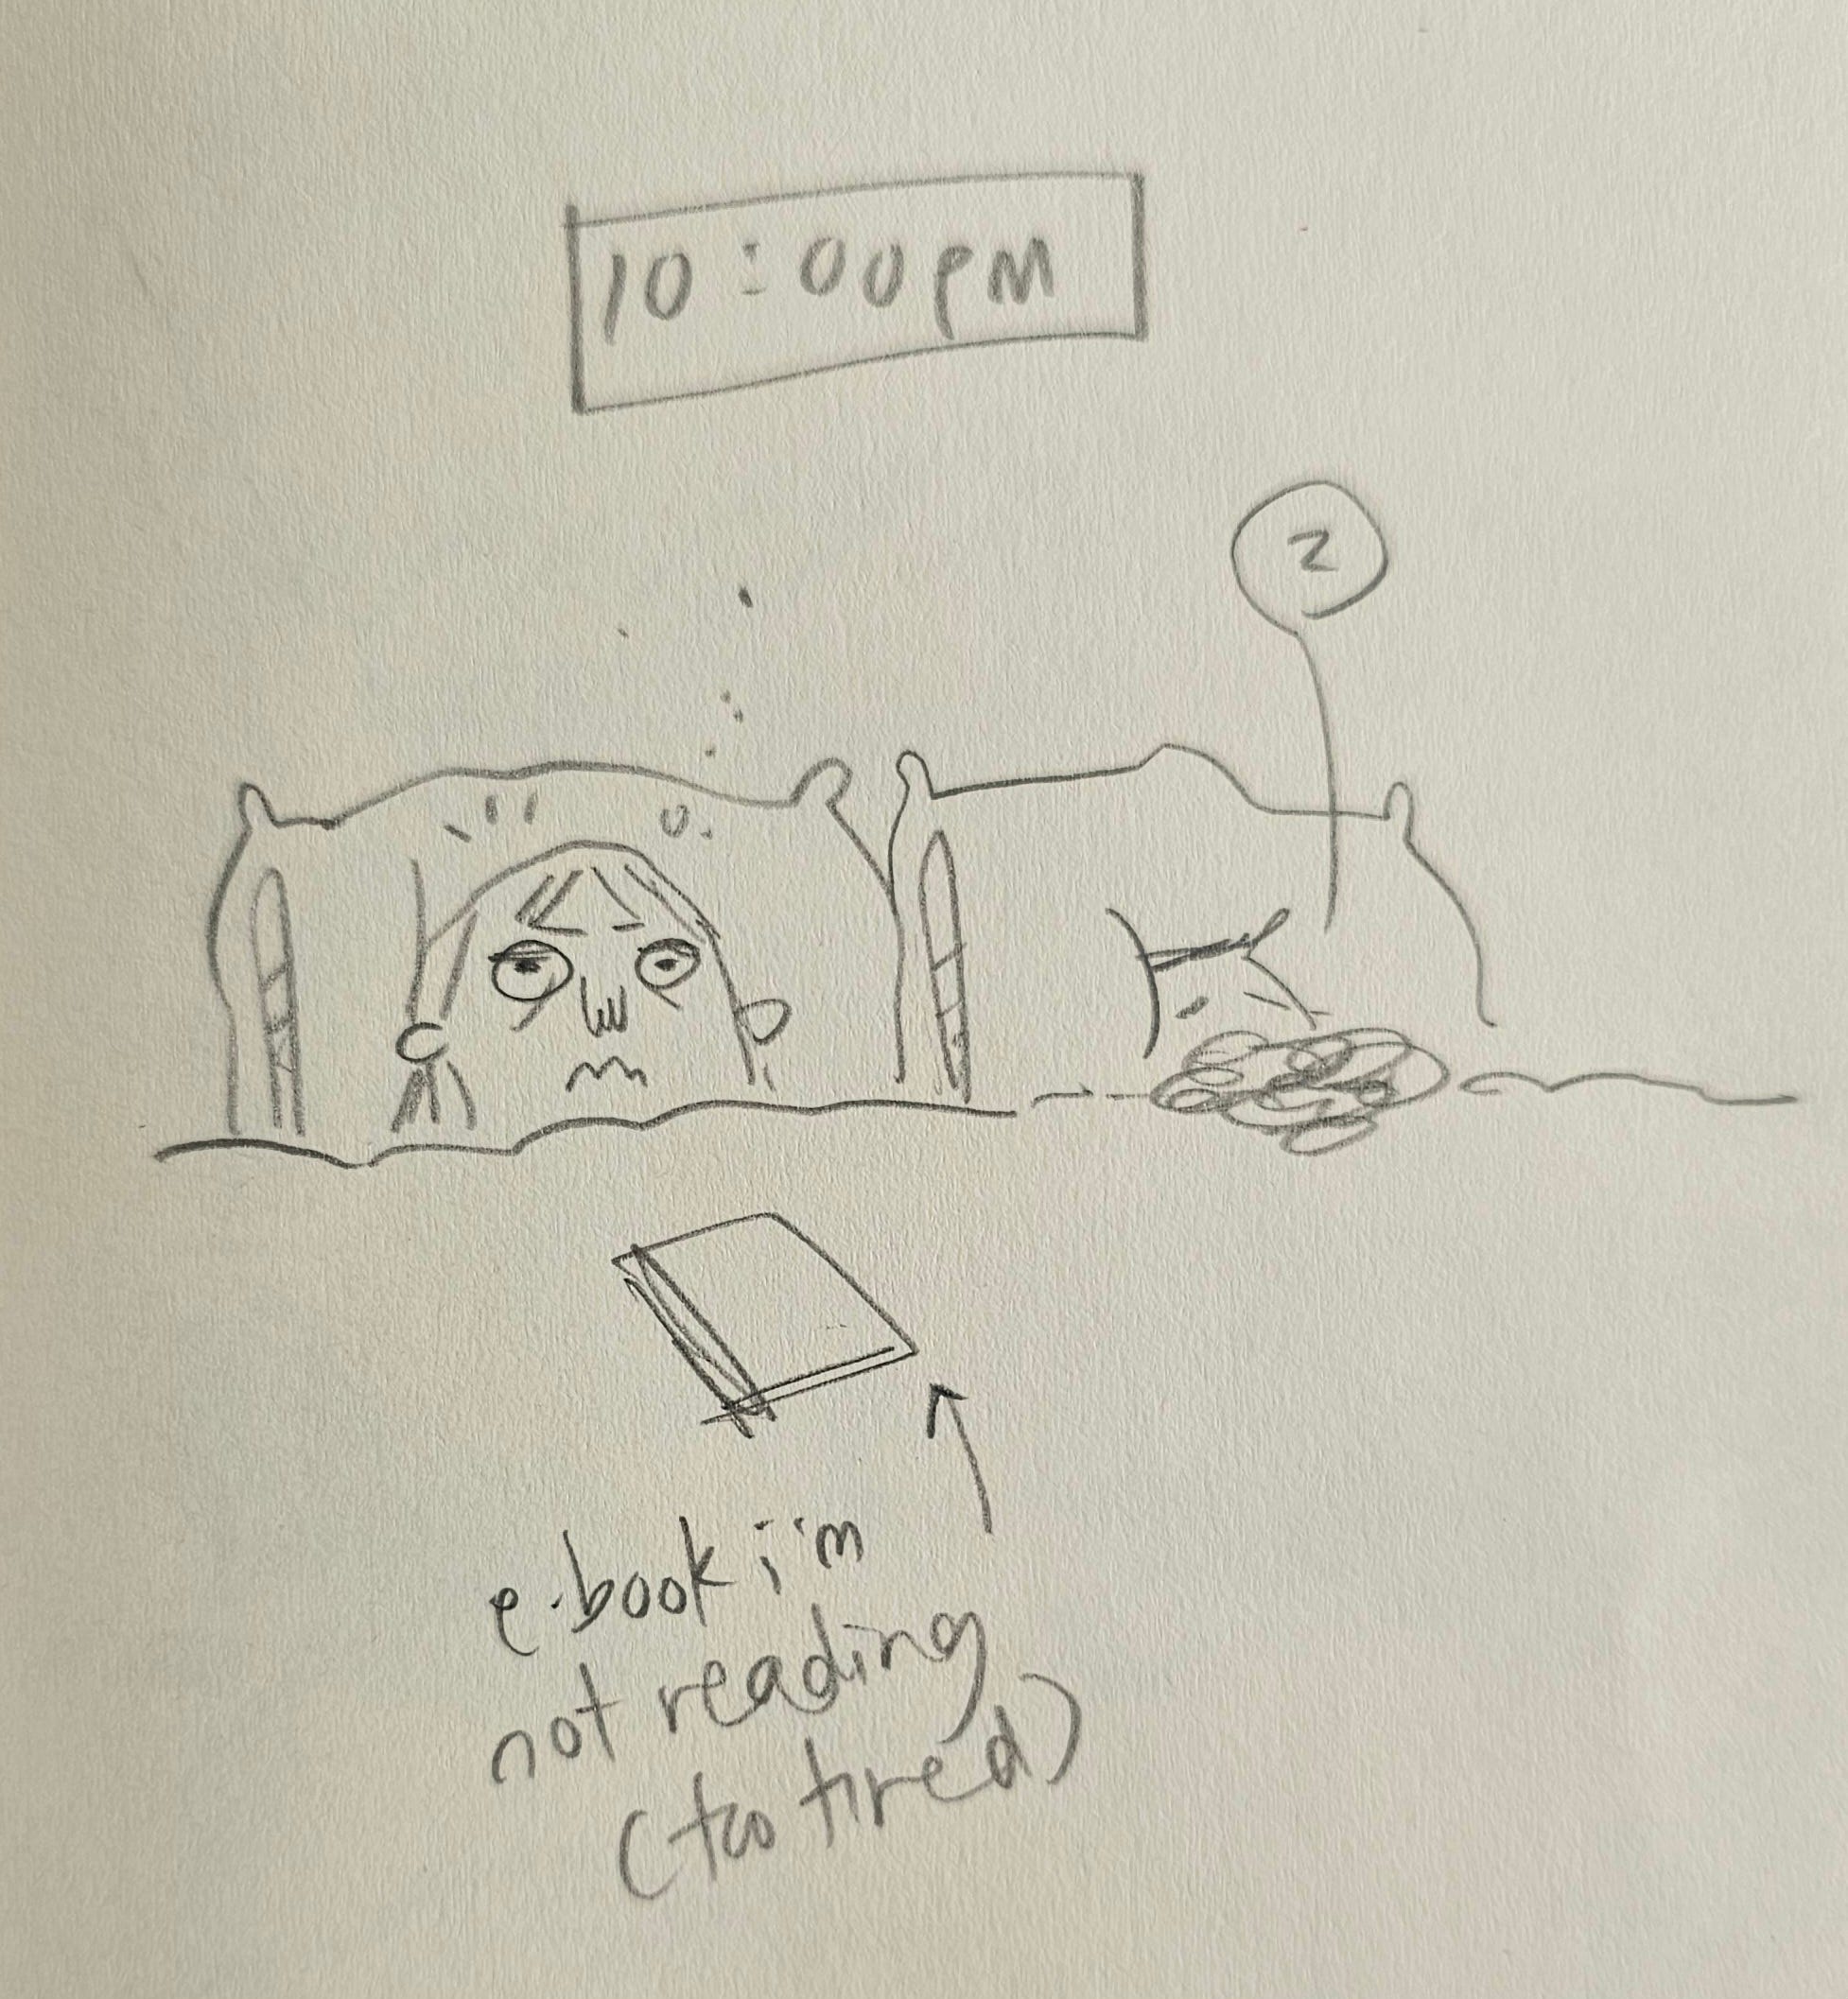 10:00PM
z
e.book i'm
not reading
(too tired)